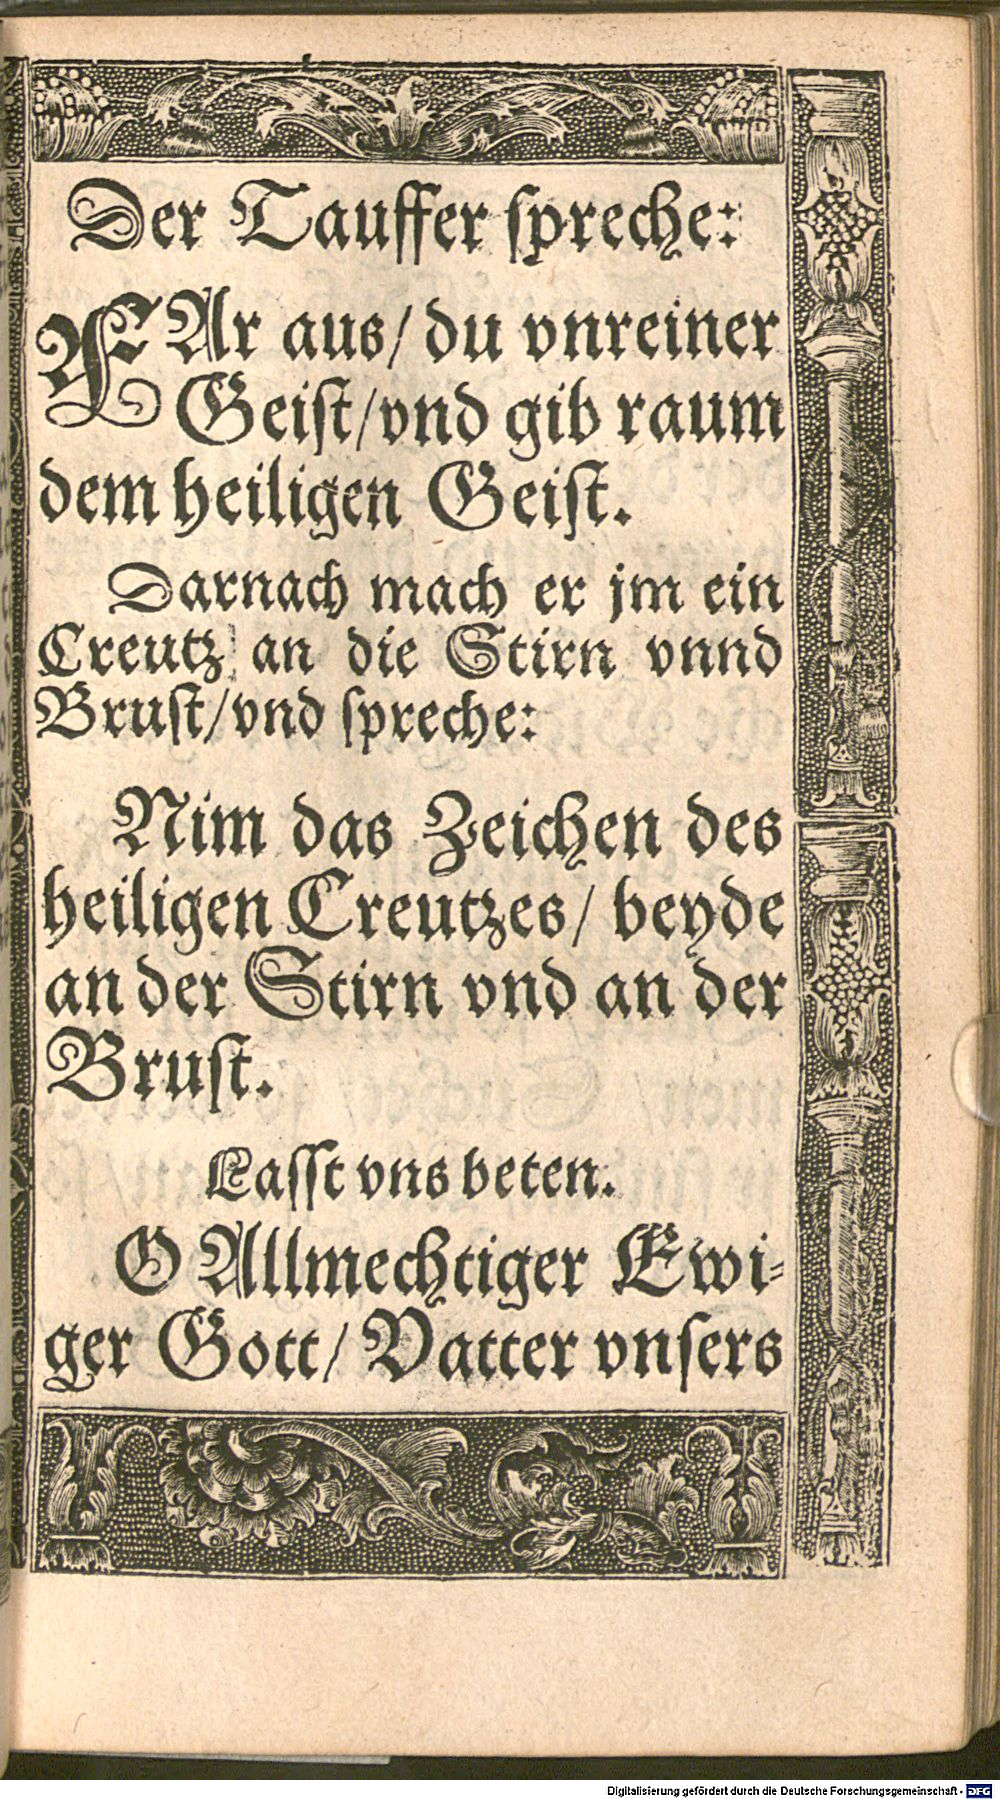 Der Tauffer spreche:
FAr aus/ du vnreiner
Geist/vnd gib raum
dem heiligen Geist.
Darnach mach er jm ein
Creutz an die Stirn vnnd
Brust/vnd spreche:
Nim das Zeichen des
heiligen Creutzes/ beyde
an der Stirn vnd an der
Brust.
Lasst vns beten.
O Allmechtiger Ewi-
ger Gott/ Vatter vnsers
Digitalisierung gefördert durch die Deutsche Forschungsgemeinschaft - DFG